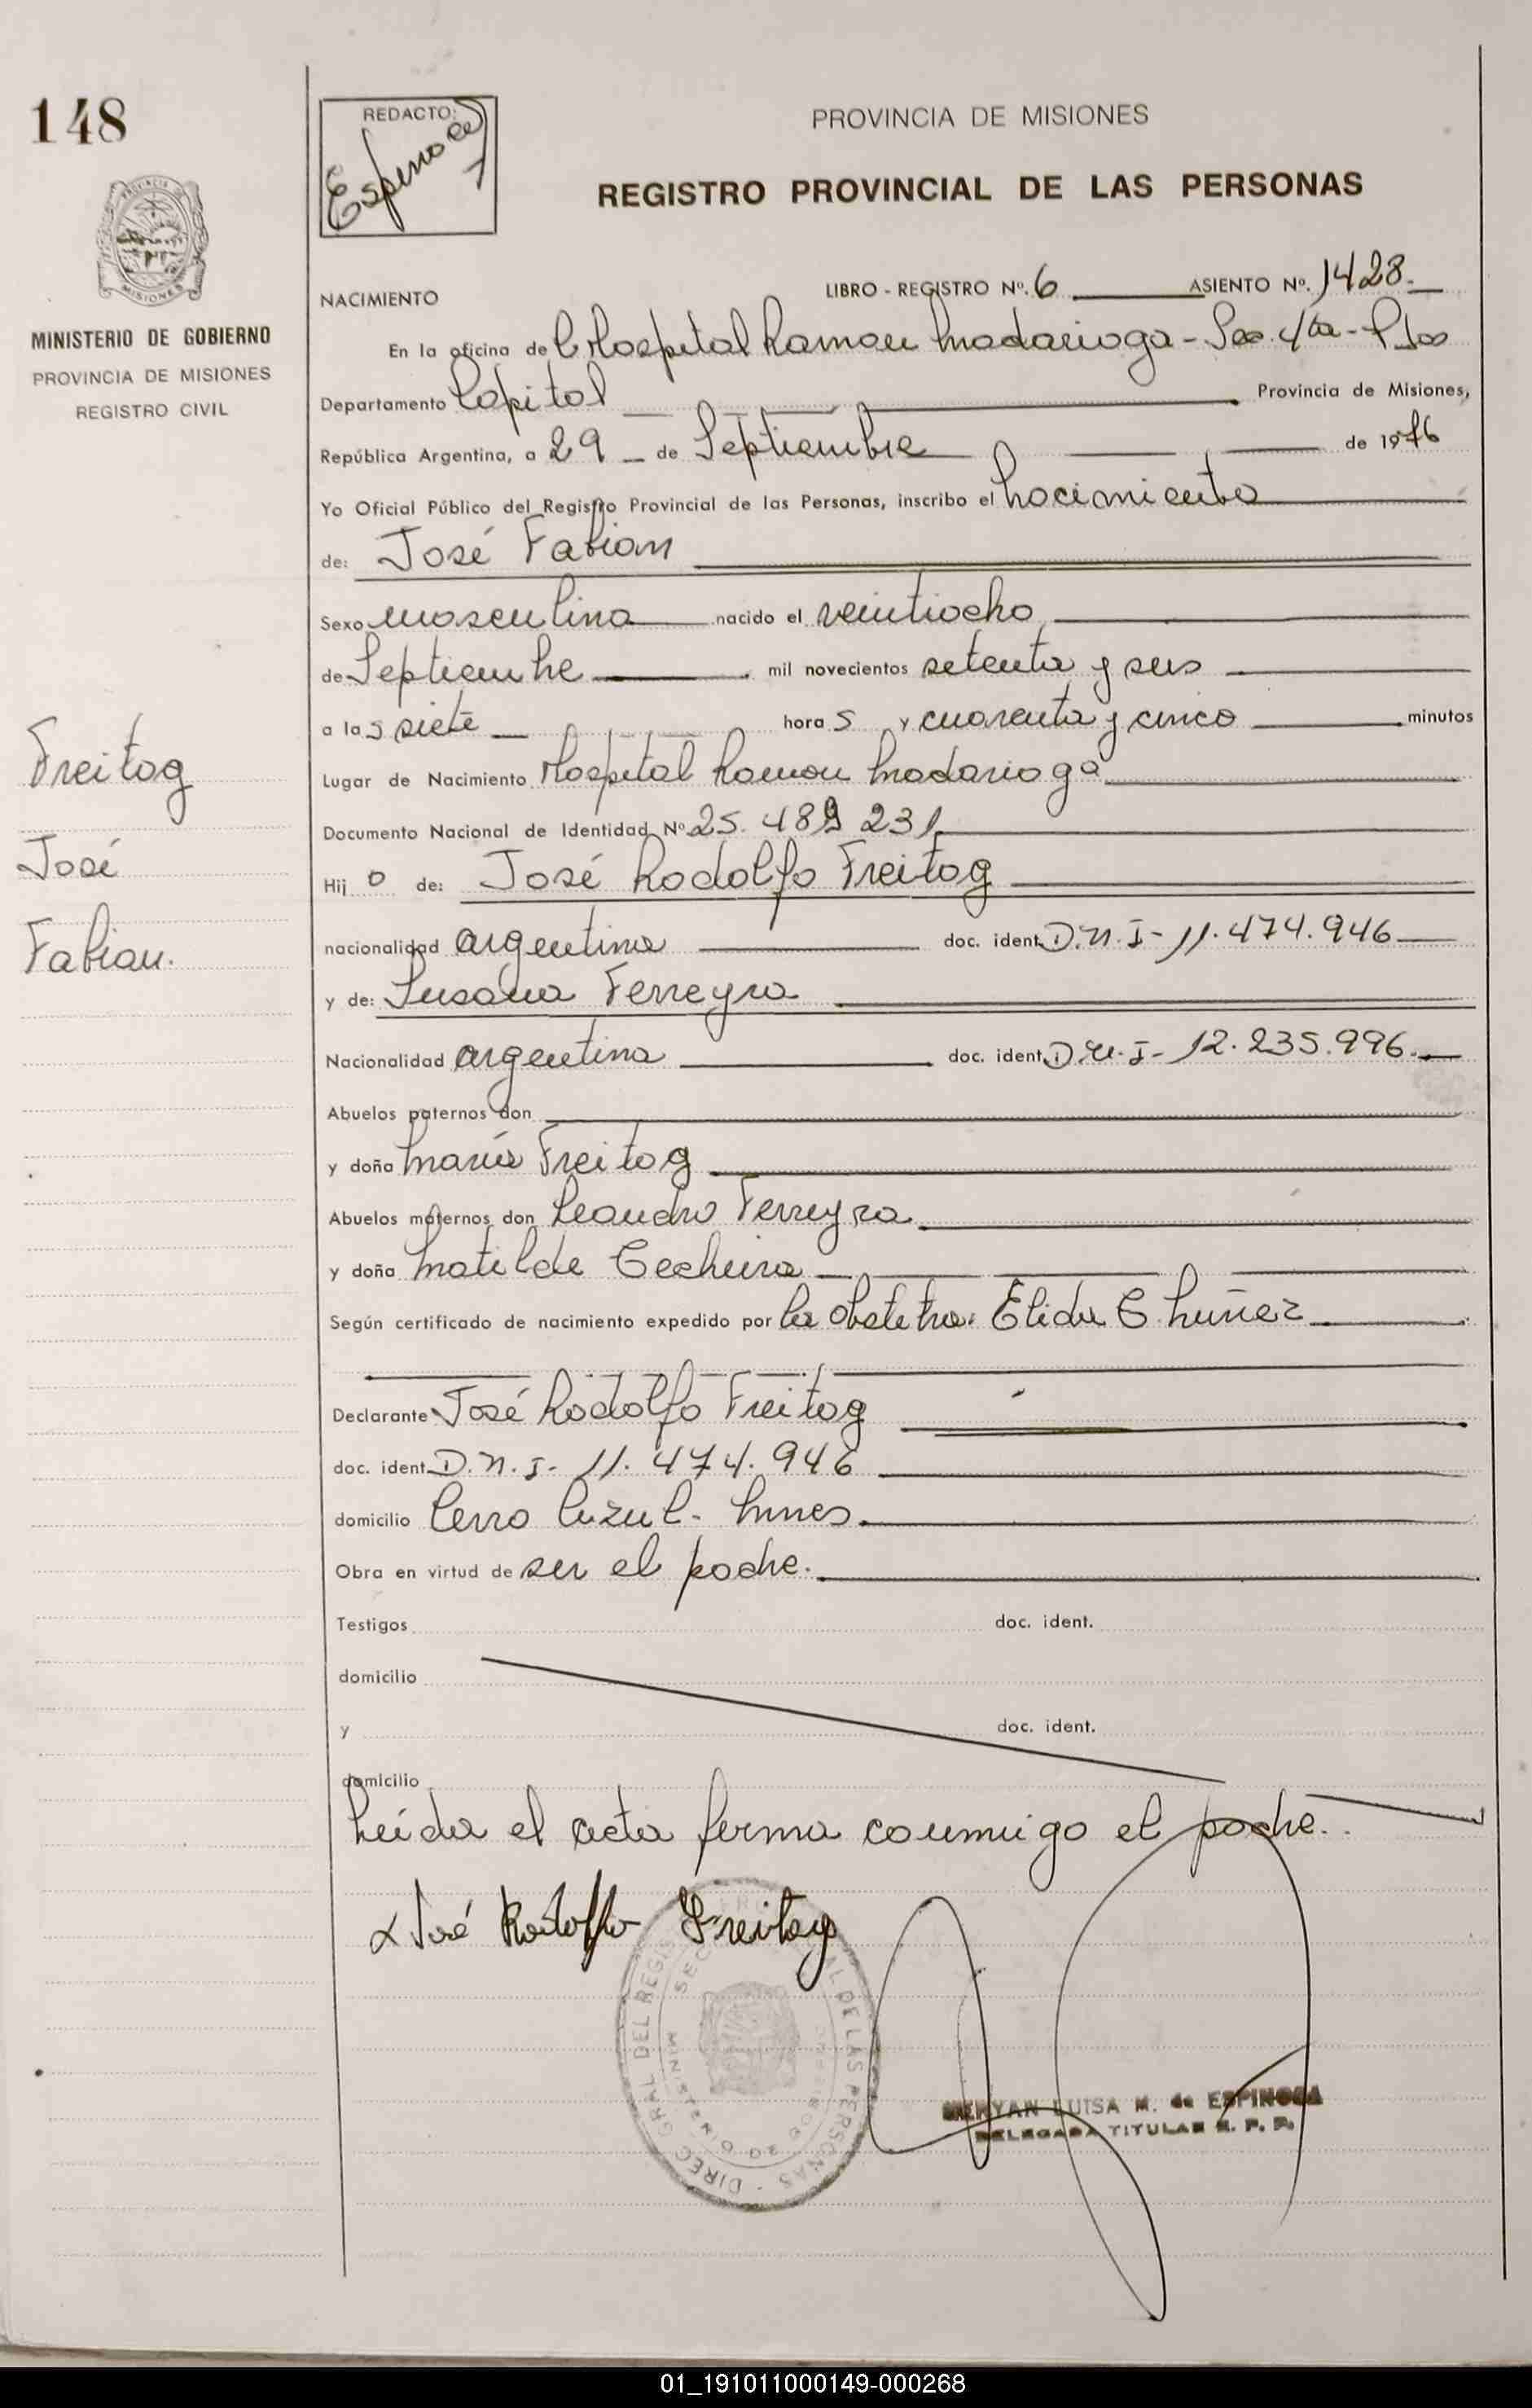 148
REDACTO:
PROVINCIA DE MISIONES
REGISTRO PROVINCIAL DE LAS PERSONAS
MINISTERIO DE GOBIERNO
PROVINCIA DE MISIONES
REGISTRO CIVIL
NACIMIENTO
LIBRO - REGISTRO Nº. 6 ASIENTO Nº. 1428.
En la oficina de Hospital Ramon Madariaga - Sec. 4ta -
Departamento Capital Provincia de Misiones,
República Argentina, a 29 de Septiembre de 1976
Yo Oficial Público del Registro Provincial de las Personas, inscribo el nacimiento
de: José Fabian
Sexo masculino nacido el veintiocho
de Septiembre mil novecientos setenta y seis
a las siete horas y cuarenta y cinco minutos
Freitag
Lugar de Nacimiento Hospital Ramon Madariaga
Documento Nacional de Identidad Nº 25. 489 231
José
Hijo de: José Rodolfo Freitag
Fabian.
nacionalidad argentina doc. ident. D.N.I- 11.474.946
y de: Susana Ferreyra
Nacionalidad argentina doc. ident. D.N.I- 12.235.996.
Abuelos paternos don
y doña María Freitag
Abuelos maternos don Leandro Ferreyra
y doña Matilde
Según certificado de nacimiento expedido por la obstetra. Elida C. Nuñez
Declarante José Rodolfo Freitag
doc. ident. D.N.I- 11.474.946
domicilio Cerro Azul- Mnes.
Obra en virtud de ser el padre.
Testigos doc. ident.
domicilio
y doc. ident.
domicilio
Leida el acta firma conmigo el padre.
José Rodolfo Freitag
LUISA M. de ESPINOSA
DELEGADA TITULAR R. P. P.
01_191011000149-000268